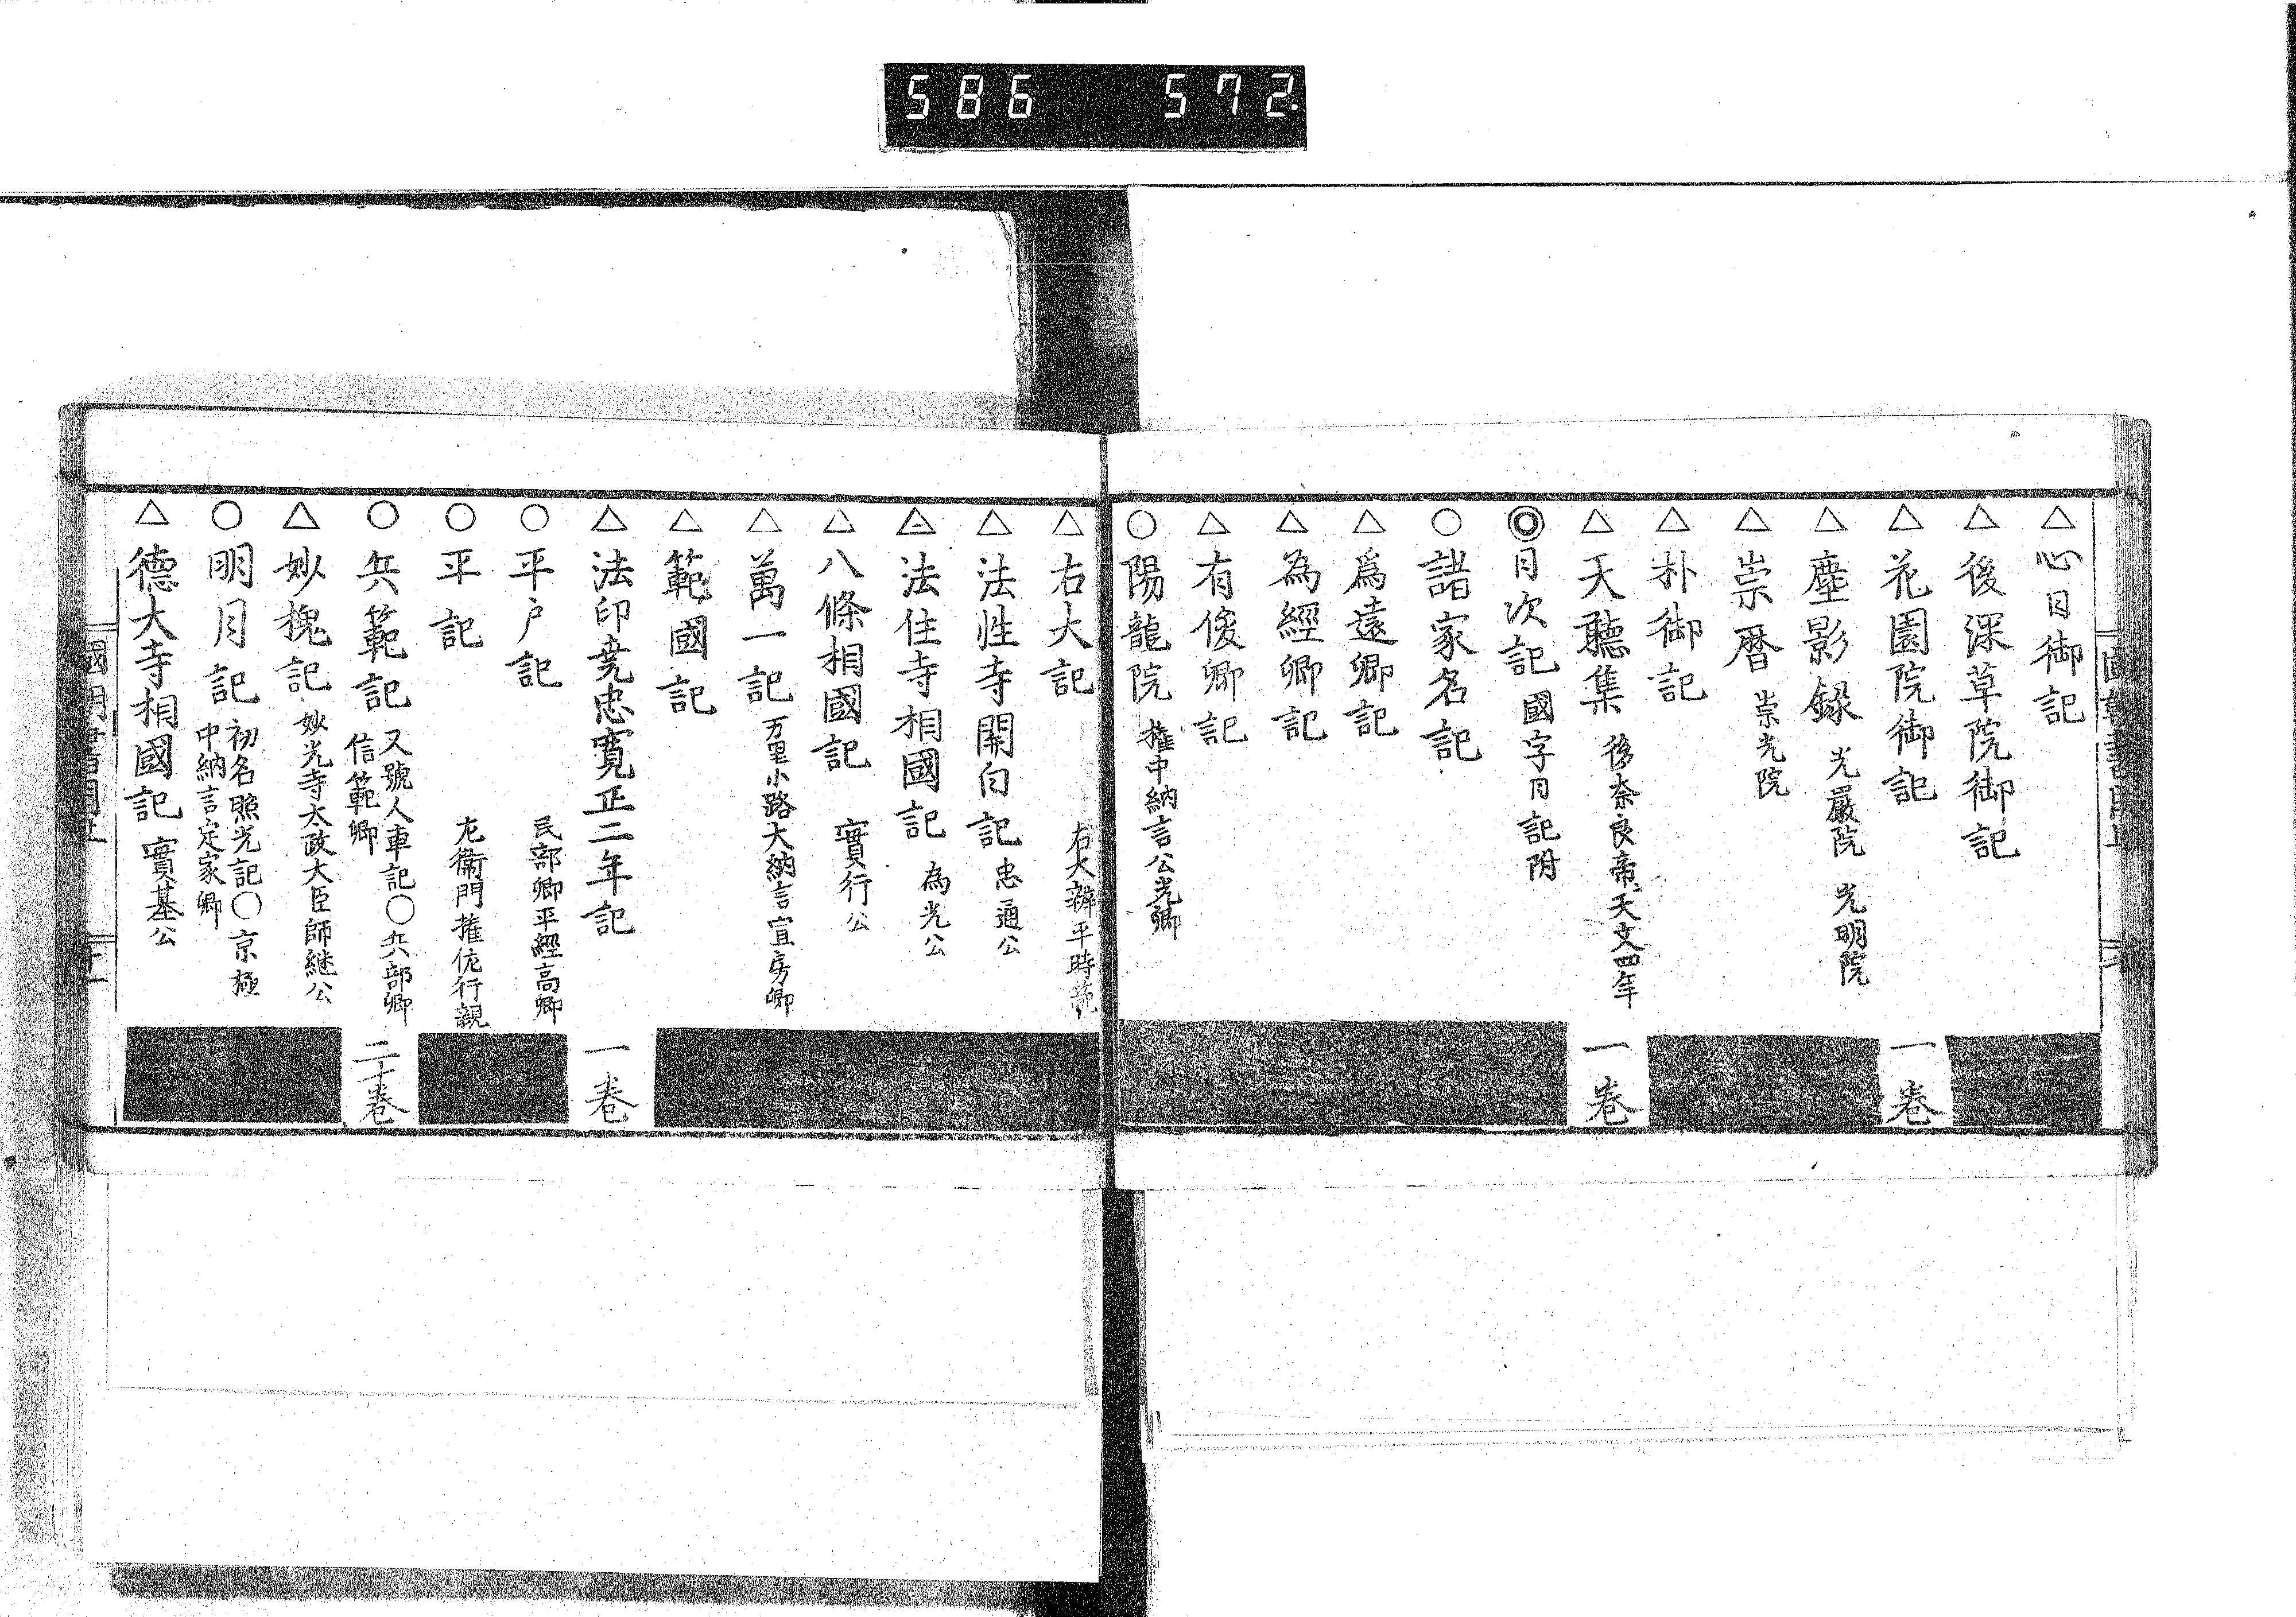 586 572.
△心日御記
△後深草院御記
△花園院御記 一卷
△塵影録 光嚴院 光明院
△崇暦 崇光院
△朴御記
△天聽集 後奈良帝天文四年 一卷
◎日次記 國字日記附
○諸家名記
△爲遠卿記
△為經卿記
△有俊卿記
○陽龍院 權中納言公光卿
△右大記 右大辨平時範
△法性寺關白記 忠通公
△法住寺相國記 為光公
△八條相國記 實行公
△萬一記 万里小路大納言宣房卿
△範國記
△法印堯忠寛正二年記 一卷
○平戸記 民部卿平經高卿
○平記 左衞門權佐行親
○兵範記 又號人車記○兵部卿
信範卿 二十卷
△妙槐記 妙光寺太政大臣師継公
○明月記 初名照光記○京極
中納言定家卿
△德大寺相國記 實基公